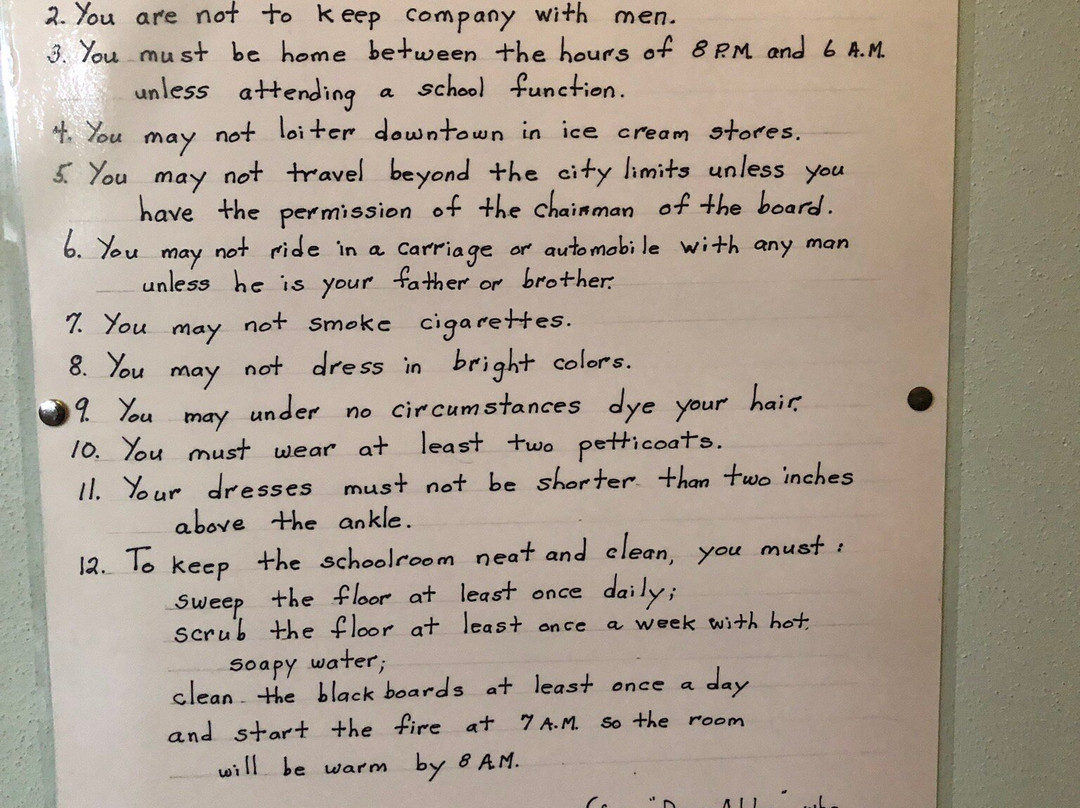 2. You are not to keep company with men.
3. You must be home between the hours of 8 P.M. and 6 A.M.
unless attending a school function.
4. You may not loiter downtown in ice cream stores.
5. You may not travel beyond the city limits unless you
have the permission of the chairman of the board.
6. You may not ride in a carriage or automobile with any man
unless he is your father or brother.
7. You may not smoke cigarettes.
8. You may not dress in bright colors.
9. You may under no circumstances dye your hair.
10. You must wear at least two petticoats.
11. Your dresses must not be shorter than two inches
above the ankle.
12. To keep the schoolroom neat and clean, you must:
sweep the floor at least once daily;
scrub the floor at least once a week with hot,
soapy water;
clean the blackboards at least once a day
and start the fire at 7 A.M. so the room
will be warm by 8 A.M.